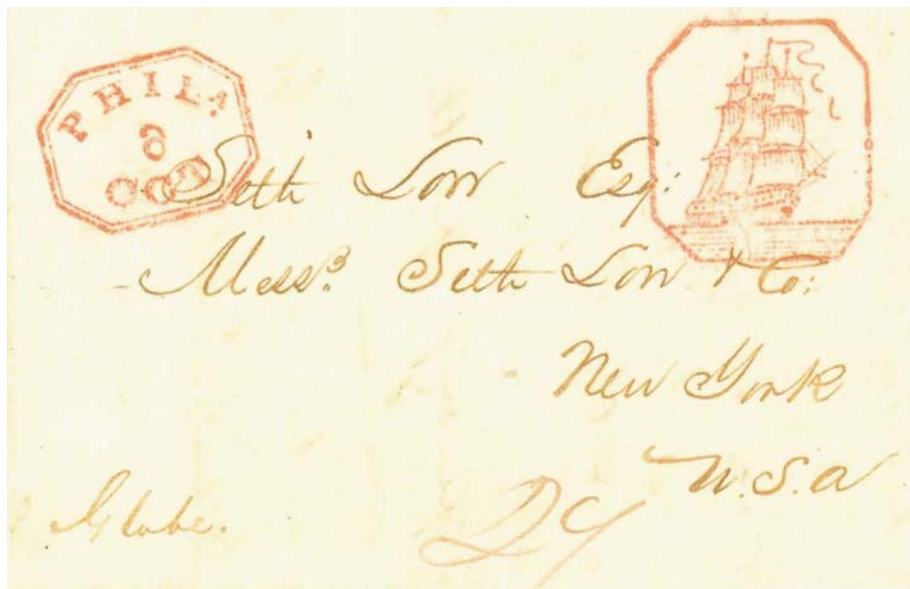 PHILA.
6
OCT
Seth Low Esq:
Messrs. Seth Low & Co:
New York
U.S.a
Globe.